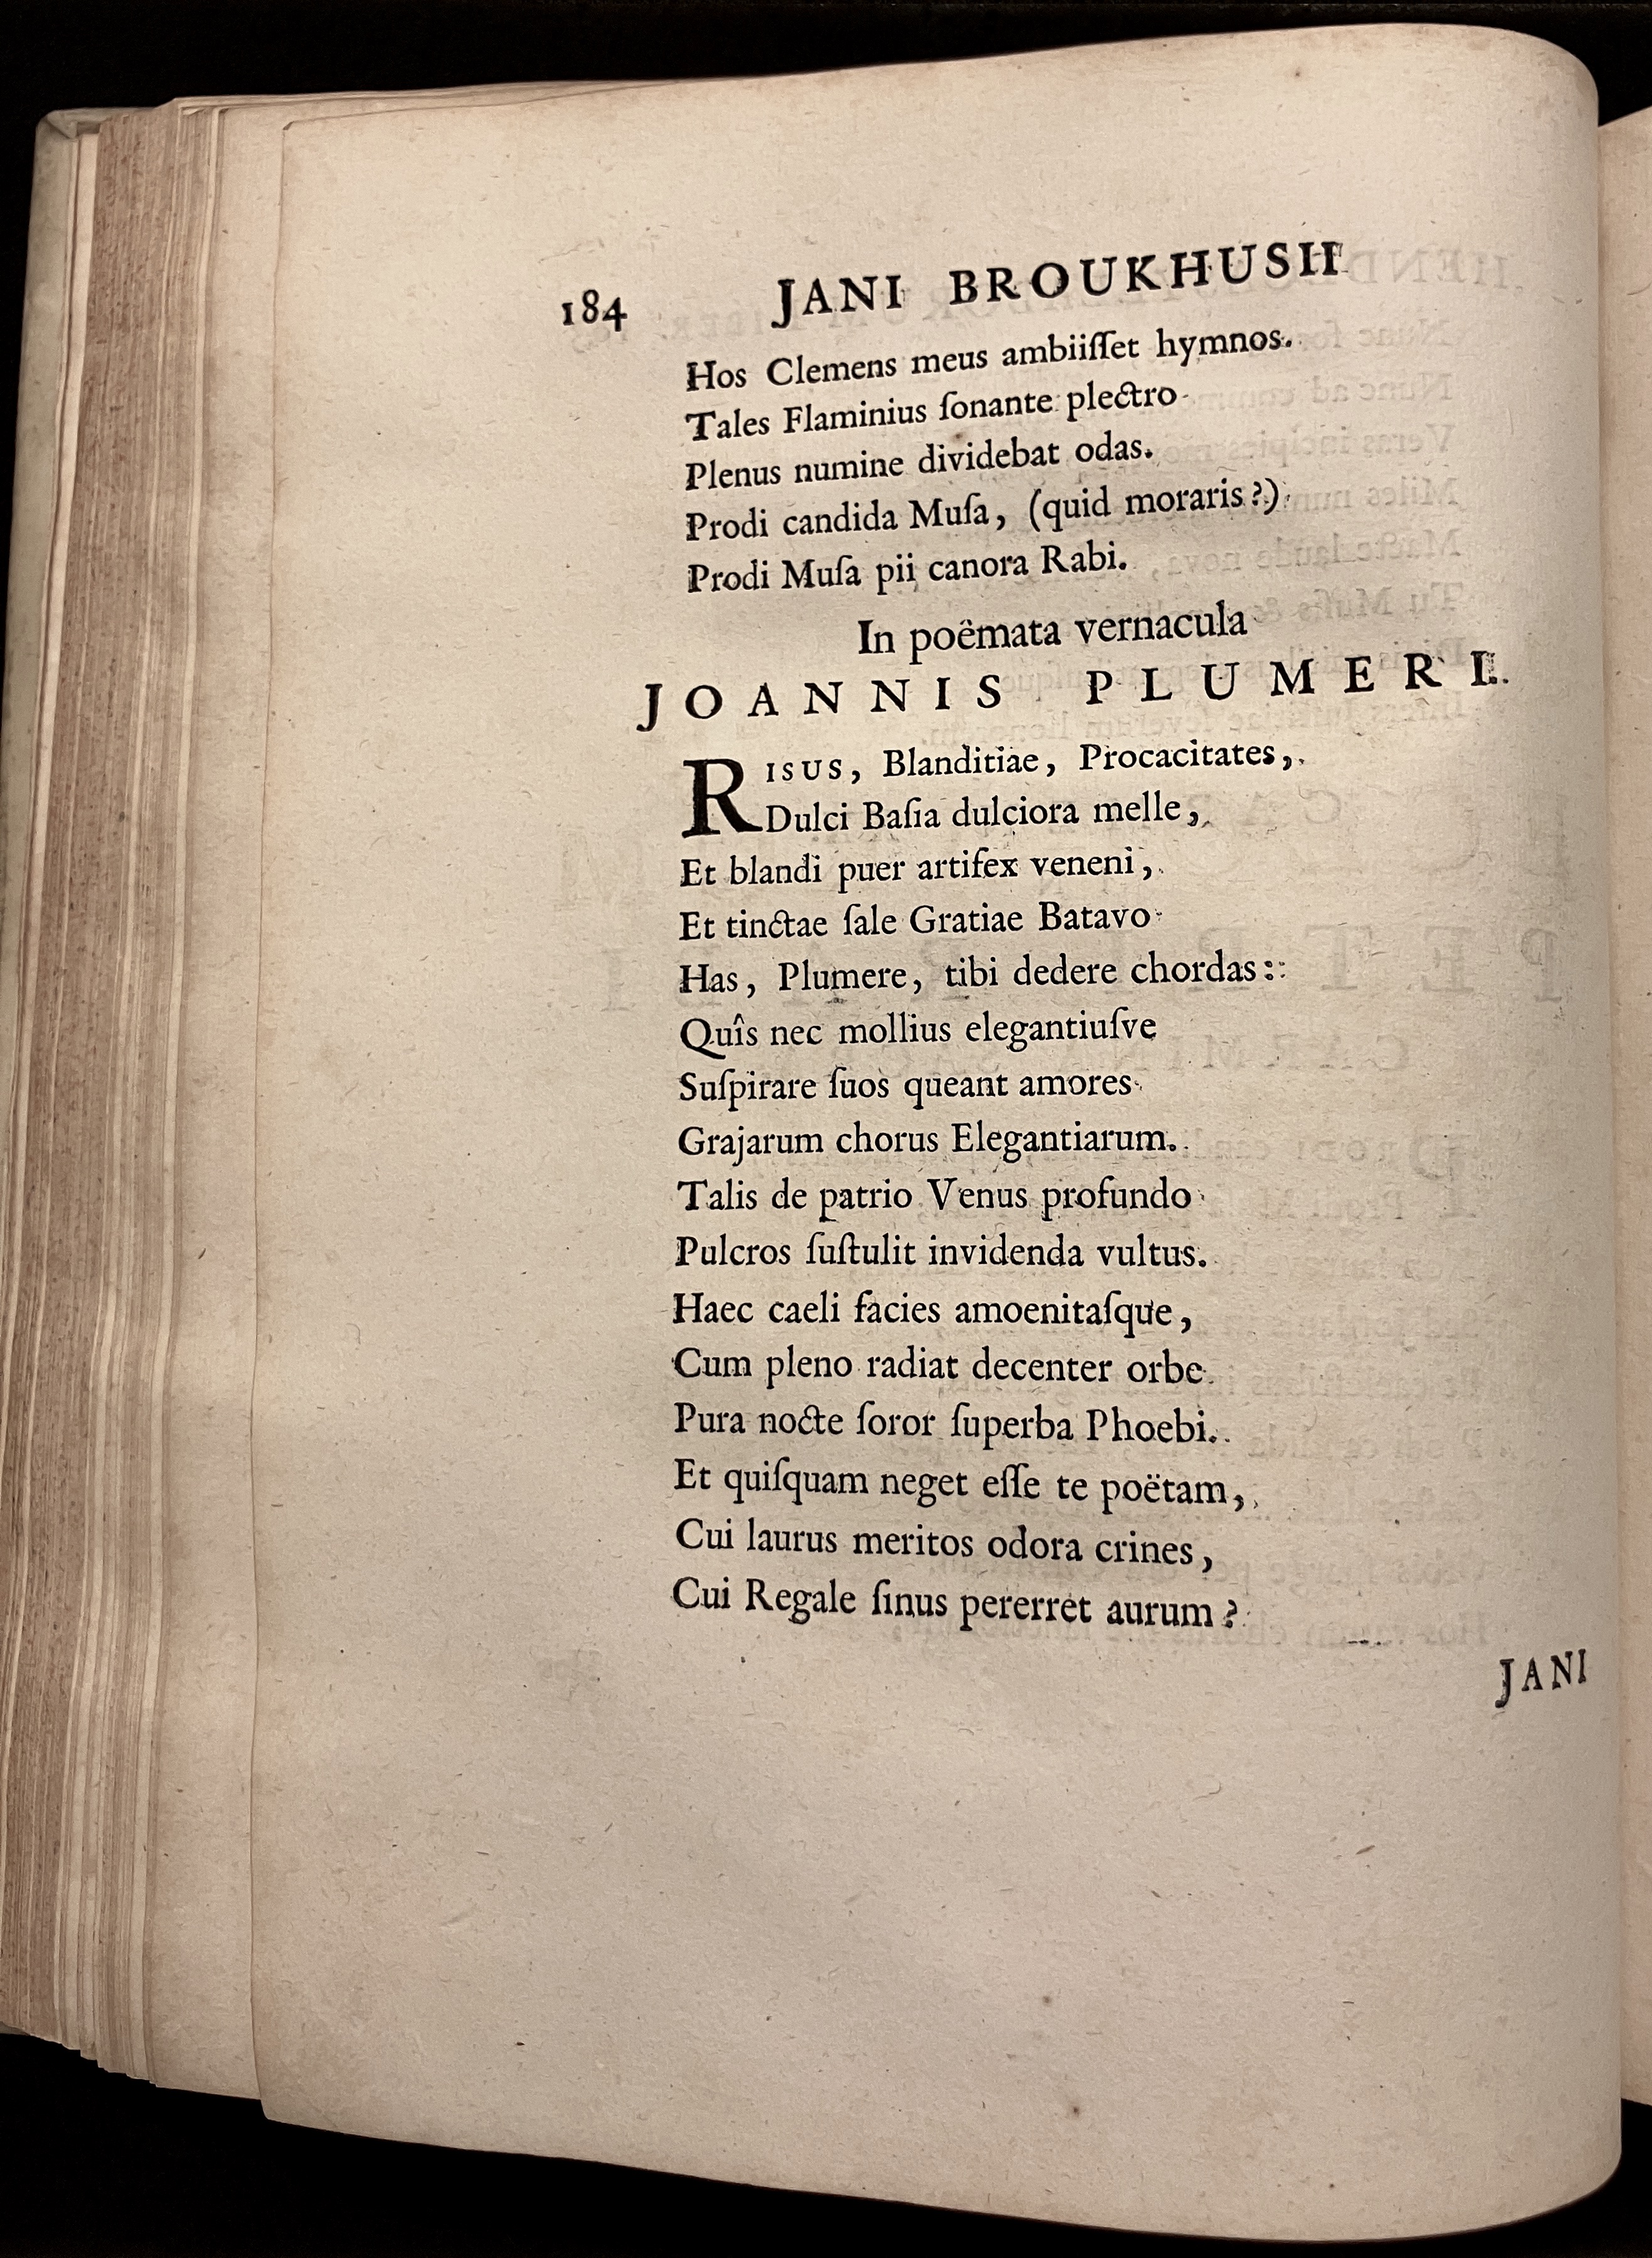 184 JANI BROUKHUSII
Hos Clemens meus ambiiſſet hymnos.
Tales Flaminius ſonante plectro
Plenus numine dividebat odas.
Prodi candida Muſa, (quid moraris?)
Prodi Muſa pii canora Rabi.
In poëmata vernacula
JOANNIS PLUMERI.
RISUS, Blanditiae, Procacitates,
Dulci Baſia dulciora melle,
Et blandi puer artifex veneni,
Et tinctae ſale Gratiae Batavo
Has, Plumere, tibi dedere chordas:
Quîs nec mollius elegantiuſve
Suſpirare ſuos queant amores
Grajarum chorus Elegantiarum.
Talis de patrio Venus profundo
Pulcros ſuſtulit invidenda vultus.
Haec caeli facies amoenitaſque,
Cum pleno radiat decenter orbe
Pura nocte ſoror ſuperba Phoebi.
Et quiſquam neget eſſe te poëtam,
Cui laurus meritos odora crines,
Cui Regale ſinus pererret aurum?
JANI